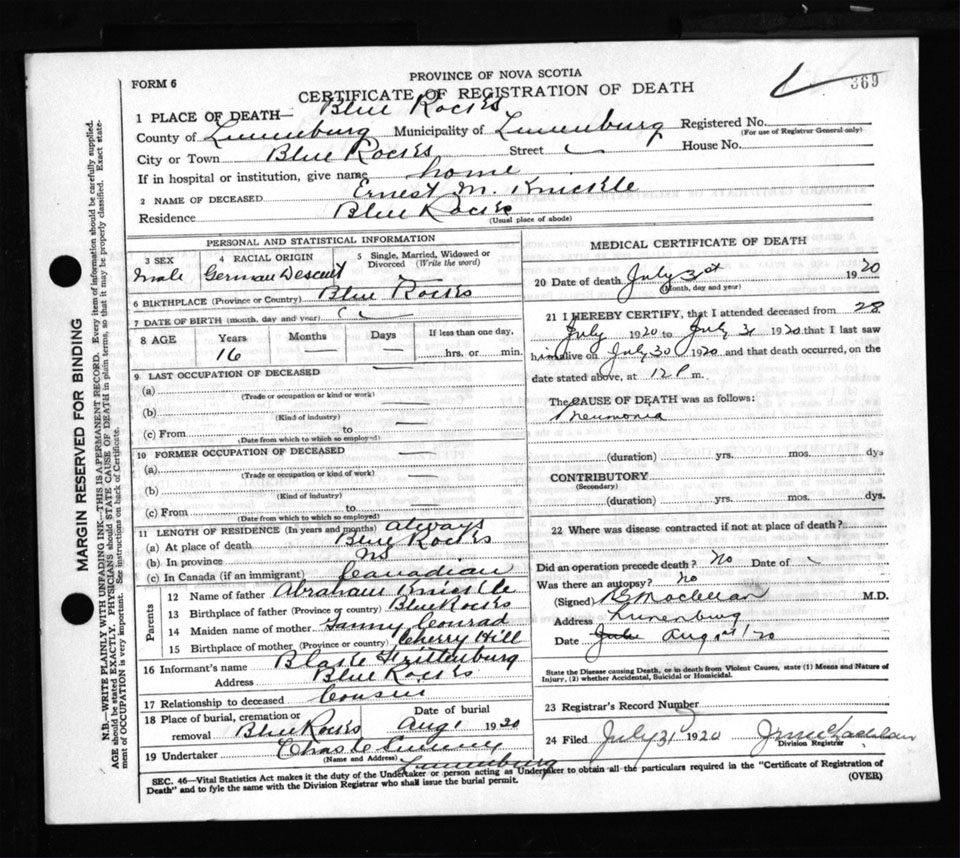 PROVINCE OF NOVA SCOTIA
FORM 6
CERTIFICATE OF REGISTRATION OF DEATH
369
1 PLACE OF DEATH— Blue Rocks
County of Lunenburg Municipality of Lunenburg Registered No.
(For use of Registrar General only)
City or Town Blue Rocks Street House No.
If in hospital or institution, give name home
2 NAME OF DECEASED Ernest M. Knickle
Residence Blue Rocks
(Usual place of abode)
PERSONAL AND STATISTICAL INFORMATION
3 SEX Male
4 RACIAL ORIGIN German Descent
5 Single, Married, Widowed or Divorced (Write the word)
6 BIRTHPLACE (Province or Country) Blue Rocks
7 DATE OF BIRTH (month, day and year)
8 AGE Years 16 Months — Days — If less than one day, hrs. or min.
9 LAST OCCUPATION OF DECEASED —
(a) —
(Trade or occupation or kind or work)
(b) —
(Kind of industry)
(c) From —
(Date from which to which so employed)
10 FORMER OCCUPATION OF DECEASED —
(a) —
(Trade or occupation or kind of work)
(b) —
(Kind of industry)
(c) From —
(Date from which to which so employed)
11 LENGTH OF RESIDENCE (In years and months) always
(a) At place of death Blue Rocks
(b) In province NS
(c) In Canada (if an immigrant) Canadian
Parents
12 Name of father Abraham Knickle
13 Birthplace of father (Province or country) Blue Rocks
14 Maiden name of mother Fanny Conrad
15 Birthplace of mother (Province or country) Cherry Hill
16 Informant's name
Address Blue Rocks
17 Relationship to deceased Cousin
18 Place of burial, cremation or removal Blue Rocks Date of burial Aug 1 1920
19 Undertaker Chas
(Name and Address) Lunenburg
MEDICAL CERTIFICATE OF DEATH
20 Date of death July 31st 1920
(Month, day and year)
21 I HEREBY CERTIFY, that I attended deceased from 28
July 1920 to July 31 1920 that I last saw
him alive on July 30 1920 and that death occurred, on the
date stated above, at 12 P m.
The CAUSE OF DEATH was as follows:
Pneumonia
(duration) yrs. mos. dys
CONTRIBUTORY
(Secondary)
(duration) yrs. mos. dys.
22 Where was disease contracted if not at place of death?
Did an operation precede death? No Date of
Was there an autopsy? No
(Signed) M.D.
Address Lunenburg
Date July Aug 1st 20
State the Disease causing Death, or in death from Violent Causes, state (1) Means and Nature of
Injury, (2) whether Accidental, Suicidal or Homicidal.
23 Registrar's Record Number
24 Filed July 31 1920
Division Registrar
SEC. 46—Vital Statistics Act makes it the duty of the Undertaker or person acting as Undertaker to obtain all the particulars required in the "Certificate of Registration of
Death" and to fyle the same with the Division Registrar who shall issue the burial permit.
(OVER)
MARGIN RESERVED FOR BINDING
N.B.—WRITE PLAINLY WITH UNFADING INK—THIS IS A PERMANENT RECORD. Every item of information should be carefully supplied.
AGE should be stated EXACTLY. PHYSICIANS should STATE CAUSE OF DEATH in plain terms, so that it may be properly classified. Exact state-
ment of OCCUPATION is very important. See instructions on back of Certificate.